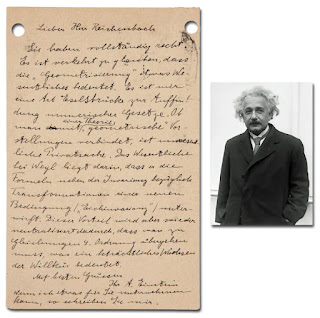 Lieber Herr Reichenbach
Sie haben vollständig recht.
Es ist verkehrt zu glauben, dass
die „Geometrisierung" etwas We-
sentliches bedeutet. Es ist nur
eine Art Eselsbrücke zur Auffin-
dung numerischer Gesetze. Ob
man mit einer Theorie „geometrische" Vor-
stellungen verbindet, ist
Privatsache. Das Wesentliche
bei Weyl liegt darin, dass er die
Formeln der Invarianz bezüglich
Transformationen einer neuen
Bedingung („Eichinvarianz") unter-
wirft. Dieser Vorteil wird aber wieder
neutralisiert dadurch, dass man zu
Gleichungen 4. Ordnung übergehen
muss, was ein beträchtliches Wachsen
der Willkür bedeutet.
Mit besten Grüssen
Ihr A. Einstein
ich etwas für Sie unternehmen
kann, so schreiben Sie mir.